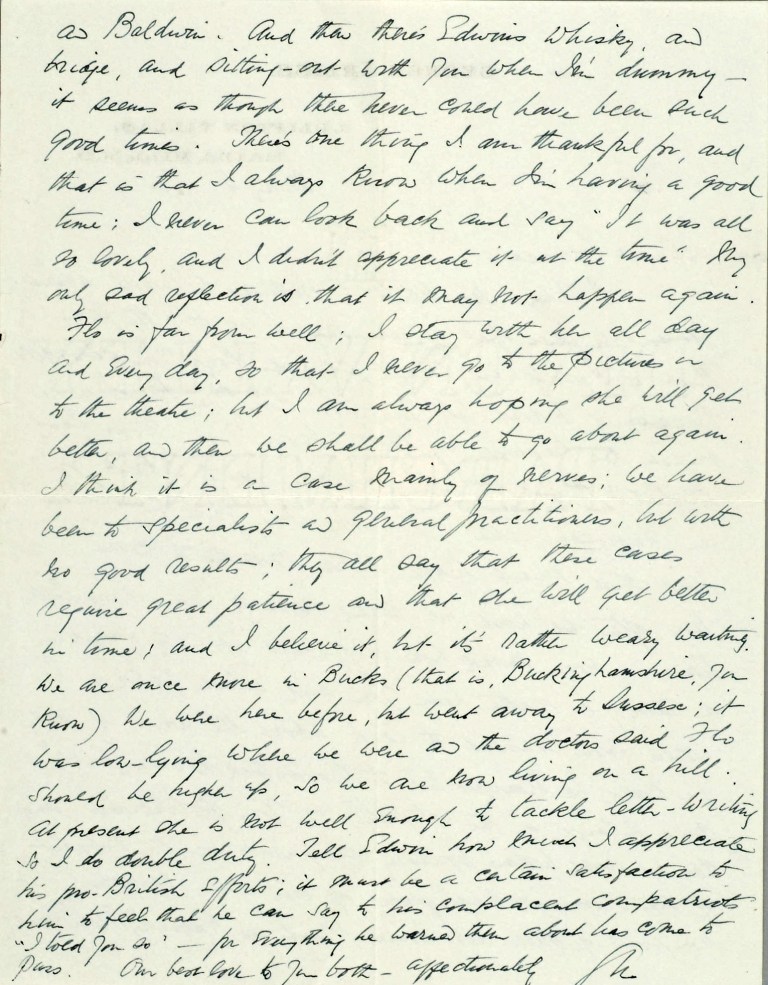 as Baldwin. And then there's Edwin's whisky, and
bridge, and sitting-out with you when I'm dummy —
it seems as though there never could have been such
good times. There's one thing I am thankful for, and
that is that I always know when I'm having a good
time; I never can look back and say "It was all
so lovely, and I didn't appreciate it at the time" My
only sad reflection is that it may not happen again.
Flo is far from well; I stay with her all day
and every day, so that I never go to the pictures or
to the theatre; but I am always hoping she will get
better, and then we shall be able to go about again.
I think it is a case mainly of nerves; we have
been to specialists and general practitioners, but with
no good results; they all say that these cases
require great patience and that she will get better
in time; and I believe it, but it's rather weary waiting.
We are once more in Bucks (that is, Buckinghamshire, you
know) We were here before, but went away to Sussex; it
was low-lying where we were and the doctors said Flo
should be higher up, so we are now living on a hill.
At present she is not well enough to tackle letter-writing
so I do double duty. Tell Edwin how much I appreciate
his pro-British efforts; it must be a certain satisfaction to
him to feel that he can say to his complacent compatriots
"I told you so" — for everything he warned them about has come to
pass. Our best love to you both — affectionately